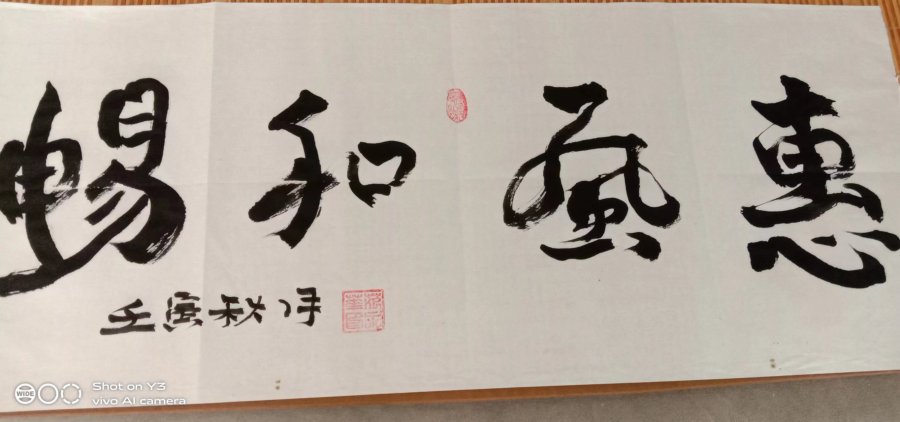 惠風和暢
壬寅秋
WIDE
Shot on Y3
vivo AI camera